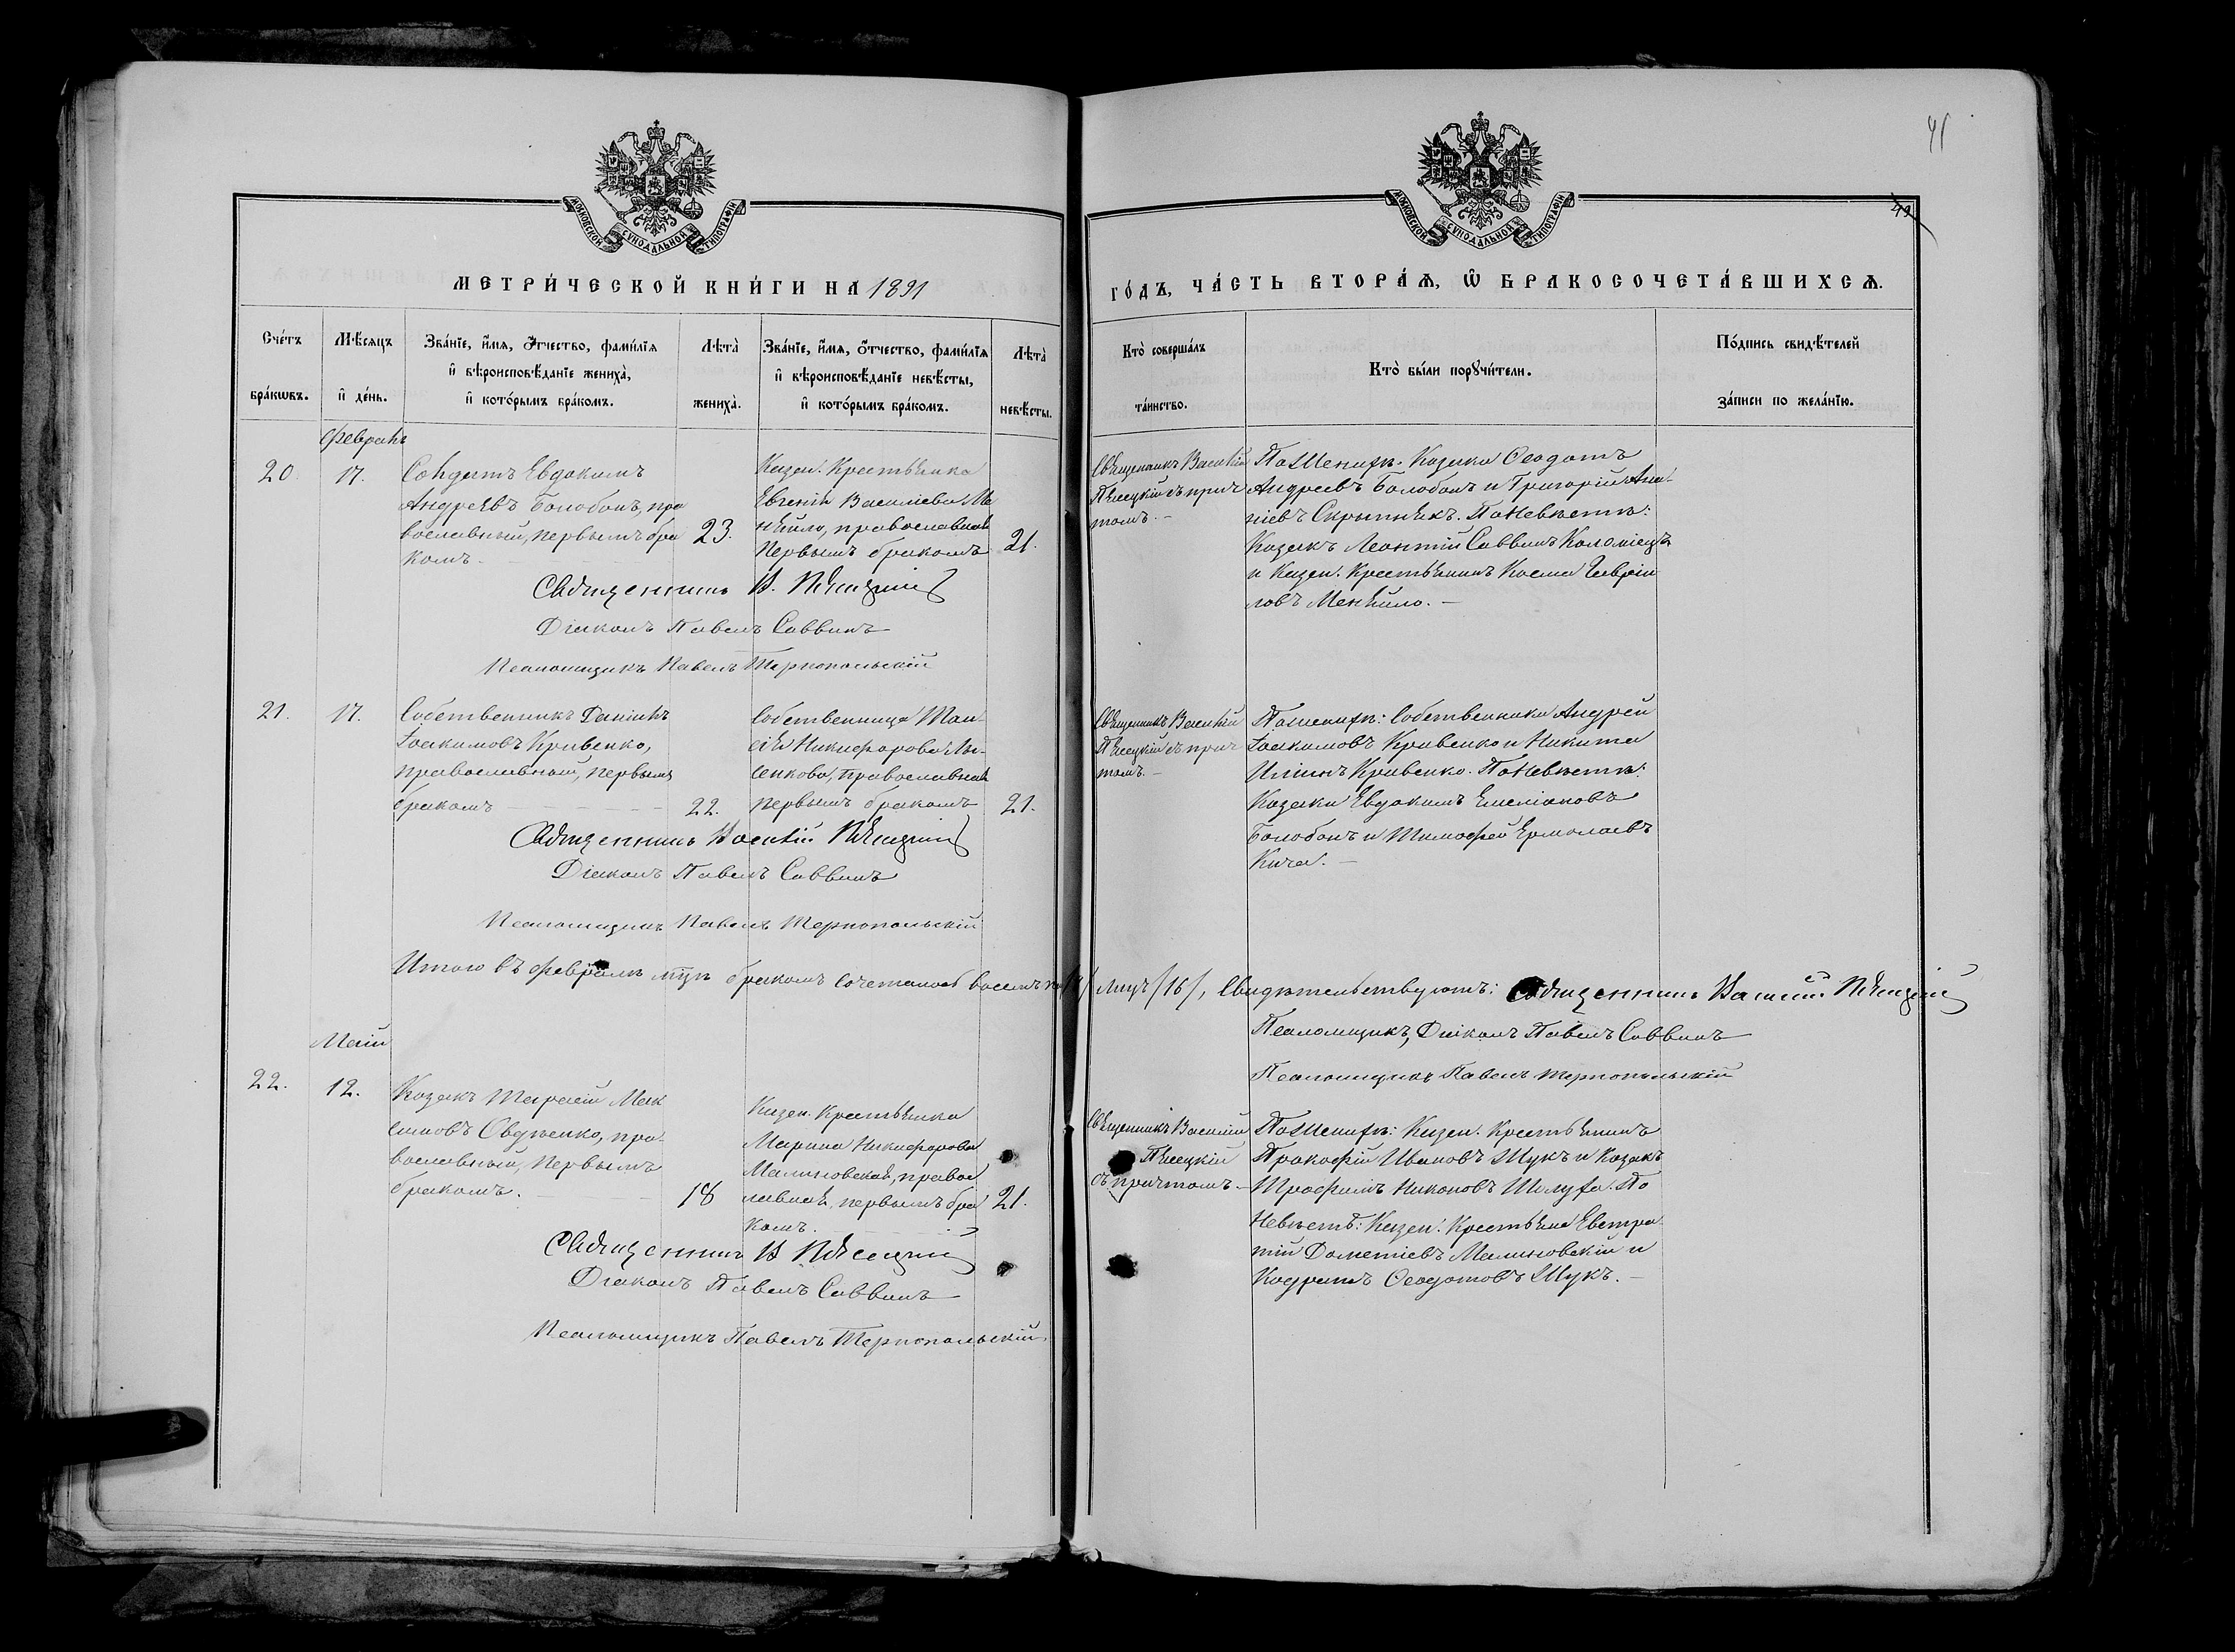 41
49
МОСКОВСКОЙ СѴНОДАЛЬНОЙ ТИПОГРАФІИ
МОСКОВСКОЙ СѴНОДАЛЬНОЙ ТИПОГРАФІИ
МЕТРИ́ЧЕСКОЙ КНИ́ГИ НА 1891
ГО́ДЪ, ЧА́СТЬ ВТОРА́Ѧ, Ѡ҆ БРАКОСОЧЕТА́ВШИХСѦ.
Сче́тъ бра́кѡвъ.
Мѣ́сѧцъ и҆ де́нь.
Зва́нїе, и҆́мѧ, ѻ҆́тчество, фами́лїѧ
и҆ вѣроисповѣ́данїе жениха̀,
и҆ кото́рымъ бра́комъ.
Лѣта̀ жениха̀.
Зва́нїе, и҆́мѧ, ѻ҆́тчество, фами́лїѧ
и҆ вѣроисповѣ́данїе невѣ́сты,
и҆ кото́рымъ бра́комъ.
Лѣта̀ невѣ́сты.
Кто̀ соверша́лъ та́инство.
Кто̀ бы́ли порꙋчи́тели.
По́дпись свидѣ́телей
за́писи по жела́нїю.
Февраль
20. 17.
Солдатъ Евдокимъ
Андреевъ Балобанъ, пра
вославный, первымъ бра
комъ.
23.
Казен. Крестьянка
Евгенія Василіева Ме
нѣйло, православная
первымъ бракомъ
21.
Священникъ Василій
Пѣсецкій съ прич
томъ.
По Женихѣ: Козаки Ѳеодотъ
Андреевъ Балобанъ и Григорій Ана-
ніевъ Скрыпникъ. По Невѣстѣ:
Козакъ Леонтій Саввинъ Коломіецъ
и Казен. Крестьянинъ Косма Гаврiи
ловъ Менѣйло.
Священникъ В. Пѣсецкій
Діаконъ Павелъ Саввинъ
Псаломщикъ Павелъ Тернопольскій
21. 17.
Собственникъ Даніилъ
Іоакимовъ Кривенко,
православный, первымъ
бракомъ
22.
Собственница Таи-
сія Никифорова Лы-
сенкова, православная
первымъ бракомъ
21.
Священникъ Василій
Пѣсецкій съ прич
томъ.
По Женихѣ: Собственники Андрей
Іоакимовъ Кривенко и Никита
Иліинъ Кривенко. По Невѣстѣ:
Козаки Евдокимъ Емеліановъ
Балобанъ и Тимофей Ермолаевъ
Кича.
Священникъ Василій Пѣсецкій
Діаконъ Павелъ Саввинъ
Псаломщикъ Павелъ Тернопольскій
Итого въ февралѣ мцѣ бракомъ сочеталось восемь лицъ /16/, свидѣтельствуютъ: Священникъ Василій Пѣсецкій
Псаломщикъ, Діаконъ Павелъ Саввинъ
Псаломщикъ Павелъ Тернопольскій
Май
22. 12.
Козакъ Тарасій Мак
симовъ Овдѣенко, пра-
вославный, первымъ
бракомъ.
18
Казен. Крестьянка
Марина Никифорова
Малиновская, правос
лавная, первымъ бра
комъ.
21.
Священникъ Василій
Пѣсецкій
съ причтомъ.
По Женихѣ: Казен. Крестьянинъ
Прокофій Ивановъ Жукъ и Козакъ
Трофимъ Никоновъ Шелуха. По
Невѣстѣ: Казен. Крестьяне Евстра
тій Дометіевъ Малиновскій и
Кодратъ Ѳеодотовъ Жукъ.
Священникъ В Пѣсецкій
Діаконъ Павелъ Саввинъ
Псаломщикъ Павелъ Тернопольскій.